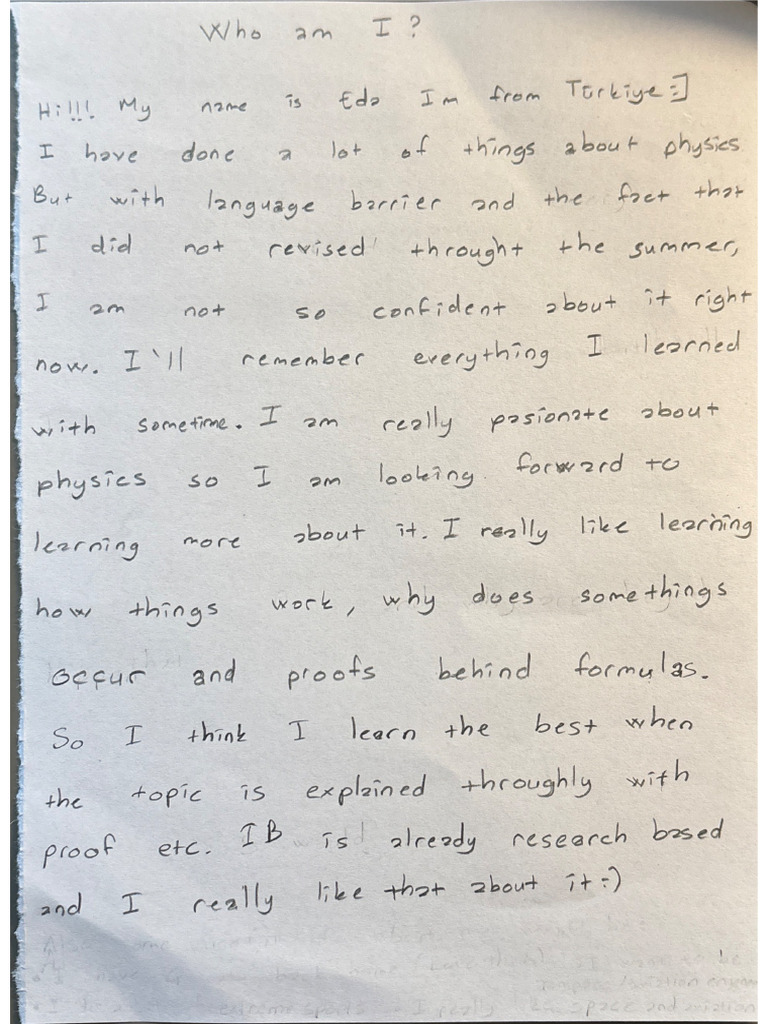 Who am I?
Hi!!! My name is Eda Im from Türkiye :]
I have done a lot of things about physics
But with language barrier and the fact that
I did not revised throught the summer,
I am not so confident about it right
now. I'll remember everything I learned
with sometime. I am really pasionate about
physics so I am looking forward to
learning more about it. I really like learning
how things work, why does somethings
occur and proofs behind formulas.
So I think I learn the best when
the topic is explained throughly with
proof etc. IB is already research based
and I really like that about it :)